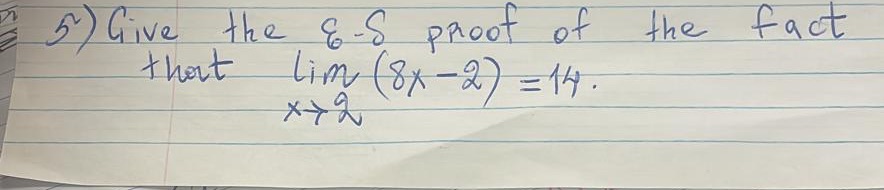 5) Give the ε-δ proof of the fact
that lim (8x-2) = 14.
x→2